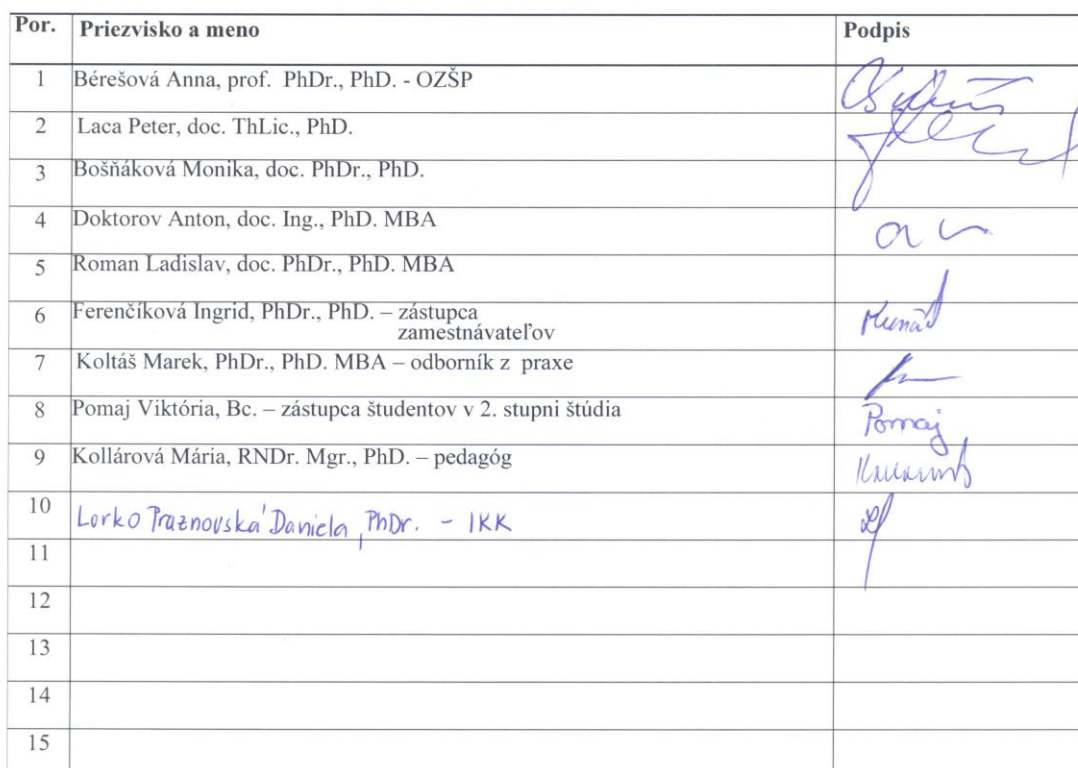 Por. Priezvisko a meno Podpis
1 Bérešová Anna, prof. PhDr., PhD. - OZŠP
2 Laca Peter, doc. ThLic., PhD.
3 Bošňáková Monika, doc. PhDr., PhD.
4 Doktorov Anton, doc. Ing., PhD. MBA
5 Roman Ladislav, doc. PhDr., PhD. MBA
6 Ferenčíková Ingrid, PhDr., PhD. – zástupca
zamestnávateľov
7 Koltáš Marek, PhDr., PhD. MBA – odborník z praxe
8 Pomaj Viktória, Bc. – zástupca študentov v 2. stupni štúdia Pomaj
9 Kollárová Mária, RNDr. Mgr., PhD. – pedagóg
10 Lorko Praznovská Daniela, PhDr. - IKK
11
12
13
14
15